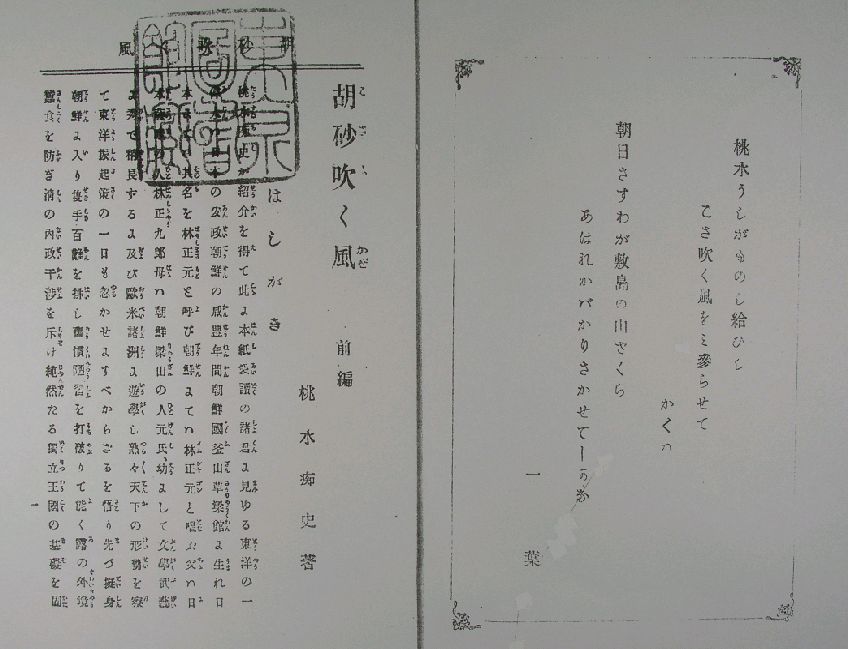 桃水うしがものし給ひし
こさ吹く風をミ參らせて
かくハ
朝日さすわが敷島の山さくら
あはれかバかりさかせてしかな
一葉
胡砂吹く風
胡砂吹く風 前編
桃水痴史著
はしがき
紹介を得て此よ本紙愛讀の諸君よ見ゆる東洋の一
の安政朝鮮の咸豊年間朝鮮國釜山草梁館よ生れ日
名を林正元と呼び朝鮮よてハ林正元と唱ふ父ハ日
人林正九郎母ハ朝鮮梁山の人元氏幼よして文學武藝
よ秀で稍長するよ及び歐米諸洲よ遊學し熟々天下の形勢を察し
て東洋振起策の一日も忽かせよすべからざるを悟り先づ挺身
朝鮮よ入り隻手百難を排し舊慣陋習を打破りて能く露の外境
蠶食を防ぎ淸の內政干涉を斥け純然たる獨立王國の基礎を固
一